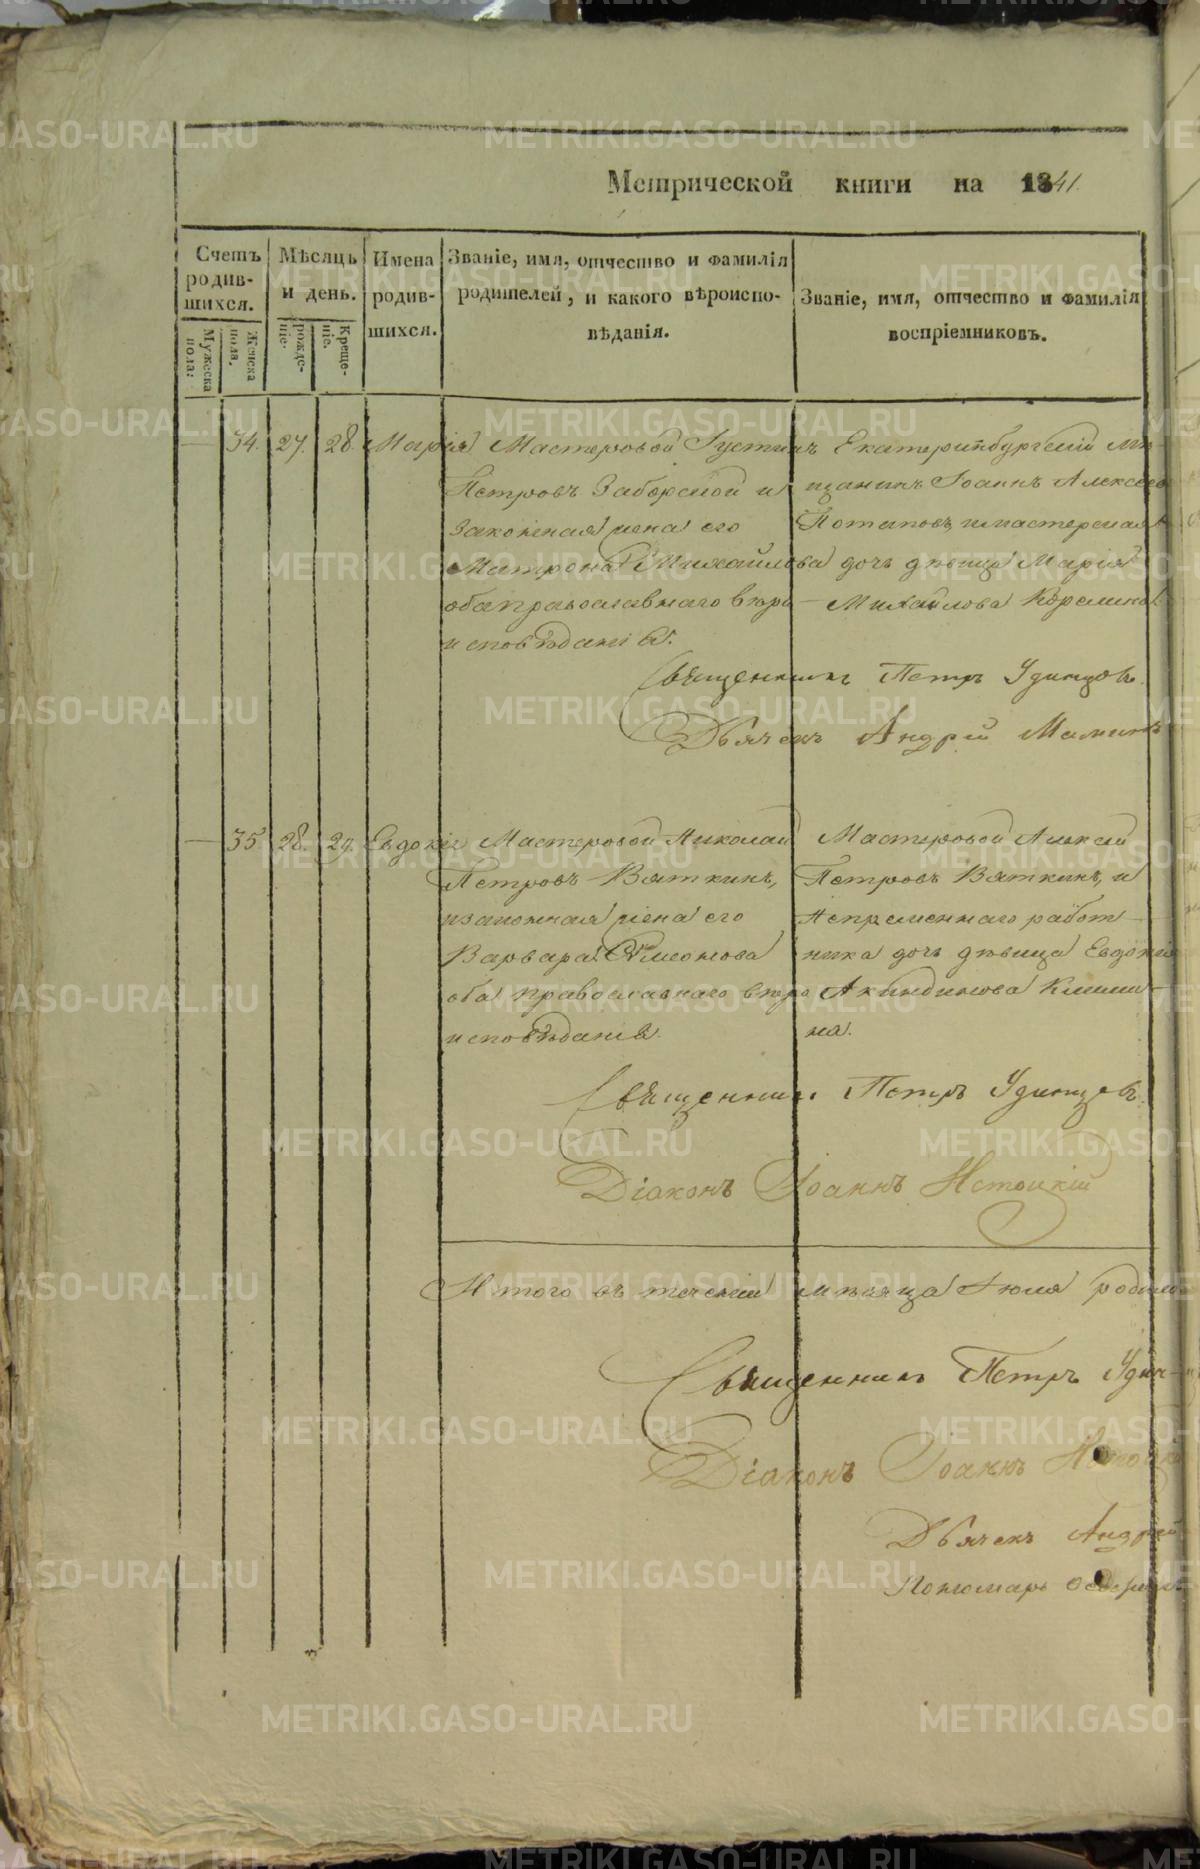 Метрической книги на 1841.
Счетъ родившихся.
Мужеска пола:
Женска пола.
Мѣсяцъ и день.
рожденіе.
Крещеніе.
Имена родившихся.
Званіе, имя, отчество и фамилія
родителей, и какого вѣроиспо-
вѣданія.
Званіе, имя, отчество и фамилія
воспріемниковъ.
— 34. 27. 28. Марія
Мастеровой Іустинъ
Петровъ Заборской и
законная жена его
Матрона Михайлова
оба православнаго вѣро
исповѣданія.
Екатеринбургскій мѣ-
щанинъ Іоаннъ Алексѣевъ
Потаповъ, и мастерская
дочь дѣвица Марія
Михайлова
Священникъ Петръ Удинцовъ.
Дьячекъ Андрей Маминъ
— 35 28. 29. Евдокія
Мастеровой Николай
Петровъ Вяткинъ,
и законная жена его
Варвара Симеонова
оба православнаго вѣро
исповѣданія.
Мастеровой Алексѣй
Петровъ Вяткинъ, и
Непременнаго работ-
ника дочь дѣвица Евдокія
Акиндинова
на.
Священникъ Петръ Удинцевъ.
Діаконъ Іоаннъ Истоцкій
Итого въ теченіи мѣсяца Іюля родилось
Священникъ Петръ Удин-
Діаконъ Іоаннъ
Дьячекъ Андрей
Пономарь
METRIKI.GASO-URAL.RU